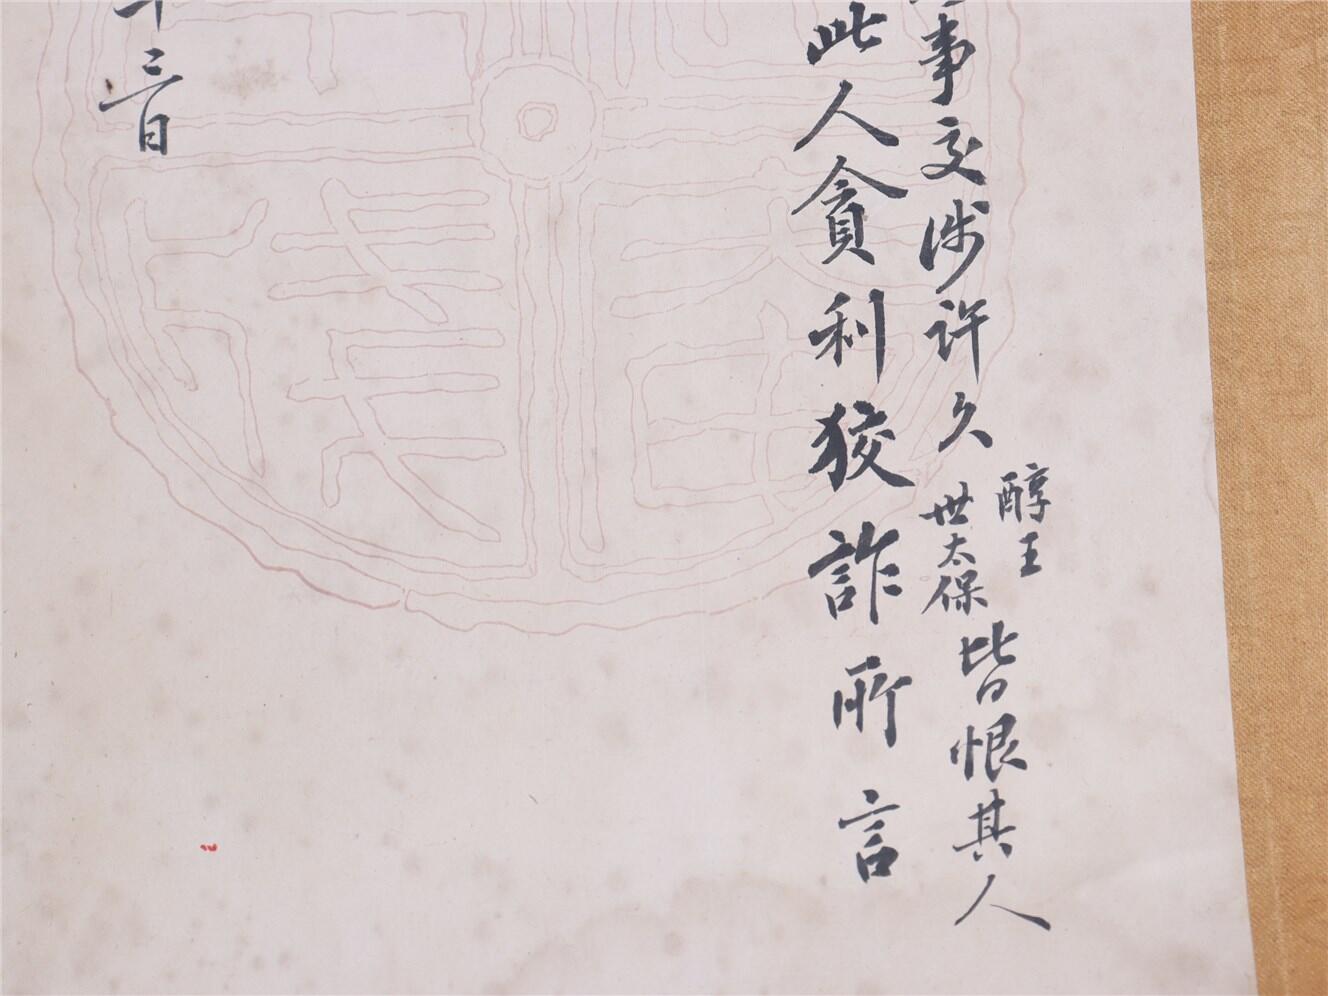 事交涉许久醇王世太保皆恨其人
此人貪利狡詐所言
三日